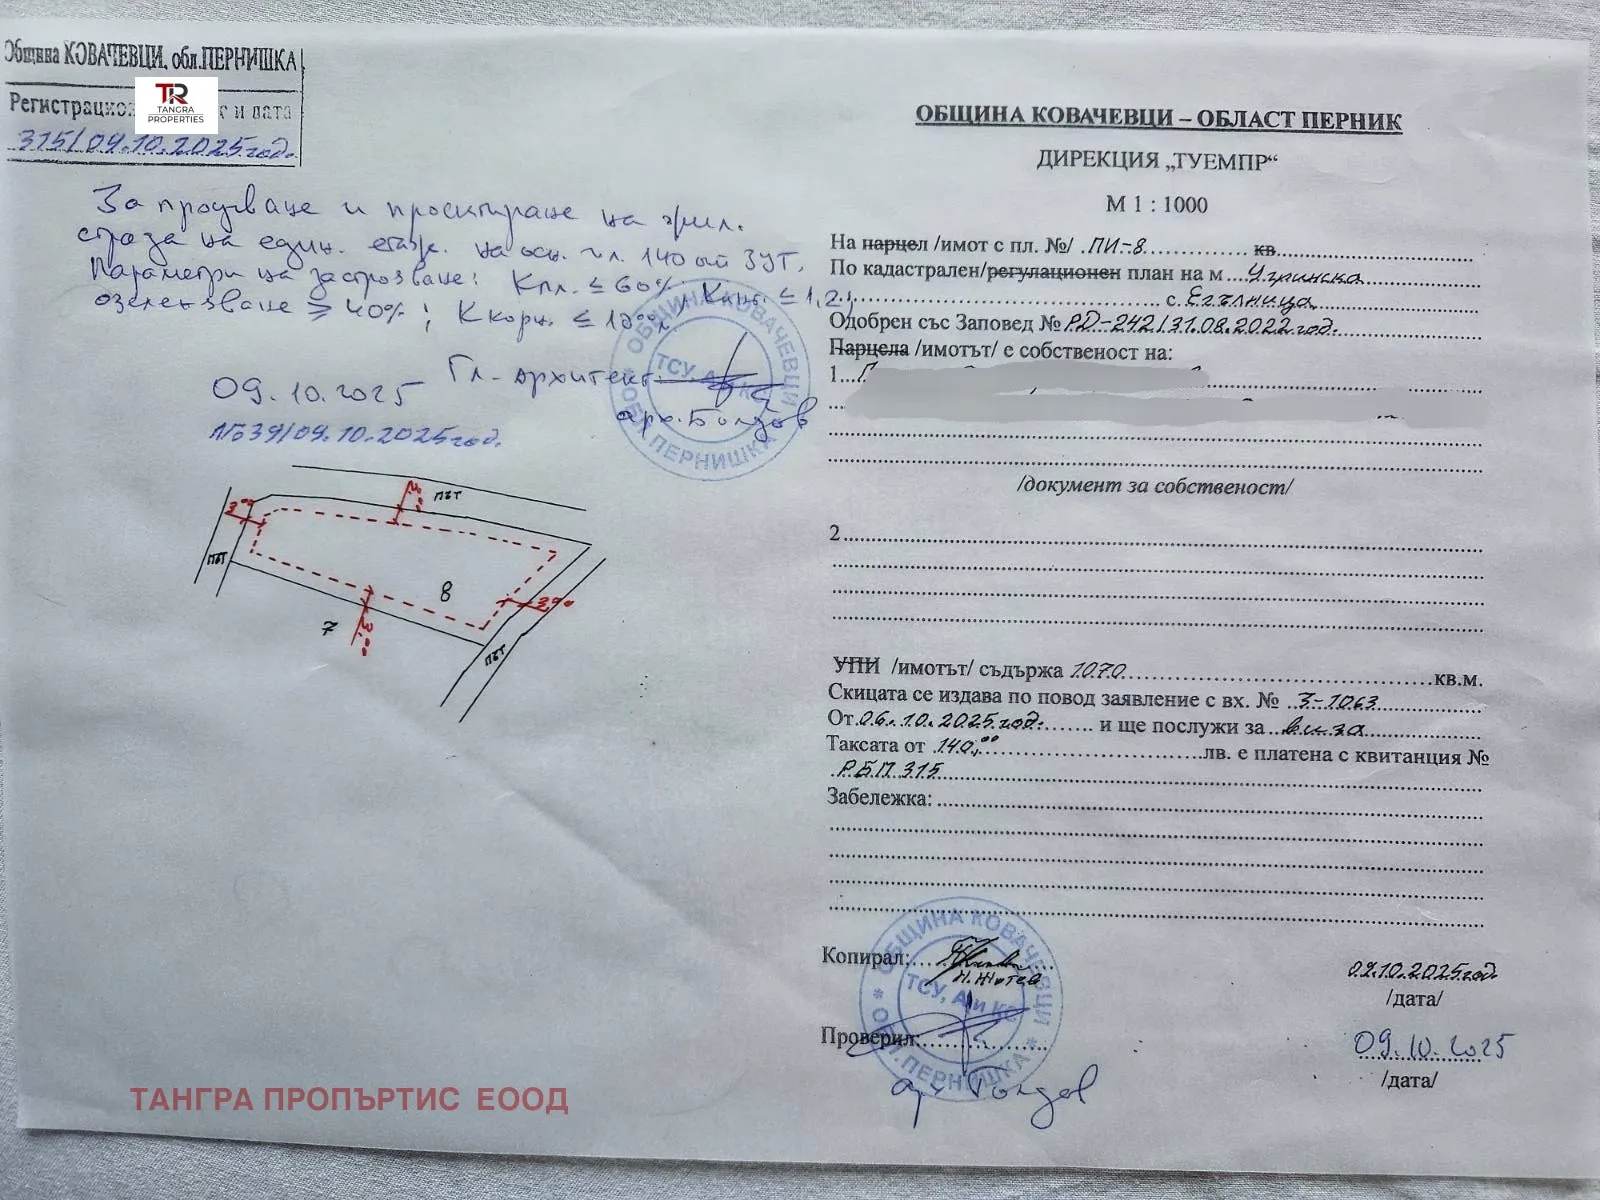 Община КОВАЧЕВЦИ, обл.ПЕРНИШКА
Регистрацио и дата
315/09.10.2025год.
TR
TANGRA
PROPERTIES
За проучване и проектиране на жил.
сграда на един. етаж. на осн. чл. 140 от ЗУТ.
Параметри на застрояване: К пл. ≤ 60%; К инт. ≤ 1,2;
озеленяване ≥ 40%; К корн. ≤ 10
Гл. архитект:
арх.
09.10.2025
39/09.10.2025год.
ОБЩИНА КОВАЧЕВЦИ ОБЛ.ПЕРНИШКА
ТСУ, А и КС
път
3,00
3,00
път
8
3,00
7
3,00
път
ОБЩИНА КОВАЧЕВЦИ – ОБЛАСТ ПЕРНИК
ДИРЕКЦИЯ „ТУЕМПР“
М 1 : 1000
На парцел /имот с пл. №/ ПИ-8 кв
По кадастрален/регулационен план на м Угринска
с. Егълница
Одобрен със Заповед № РД-242/31.08.2022год.
Парцела /имотът/ е собственост на:
1
/документ за собственост/
2
УПИ /имотът/ съдържа 1070 кв.м.
Скицата се издава по повод заявление с вх. № З-1063
От 06.10.2025год. и ще послужи за виза
Таксата от 140,00 лв. е платена с квитанция №
РБП 315
Забележка:
Копирал:
09.10.2025год
/дата/
Проверил:
09.10.2025
/дата/
арх
ОБЩИНА КОВАЧЕВЦИ * ОБЛ.ПЕРНИШКА *
ТСУ, А и КС
ТАНГРА ПРОПЪРТИС ЕООД